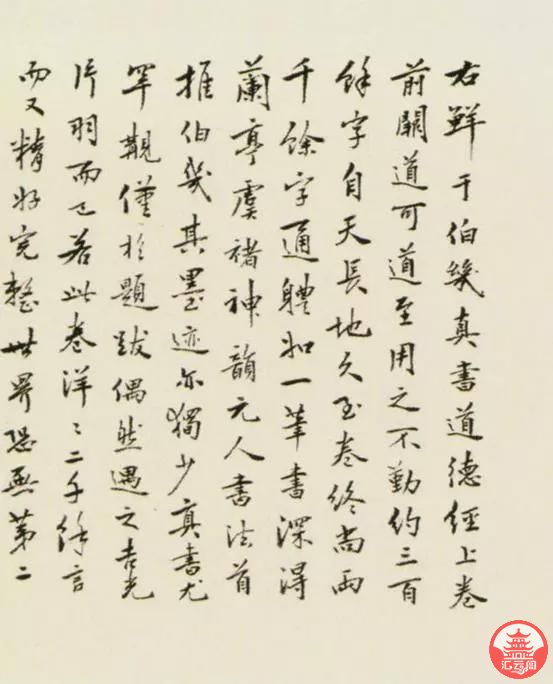 右鲜于伯幾真書道德經上卷
前闕道可道至用之不勤約三百
餘字自天長地久至卷終尚兩
千餘字通體如一筆書深得
蘭亭虞褚神韻元人書法首
推伯幾其墨迹亦獨少真書尤
罕覯僅於題跋偶然遇之吉光
片羽而已若此卷洋〻二千餘言
而又精好完整世界恐無第二
汇云阁